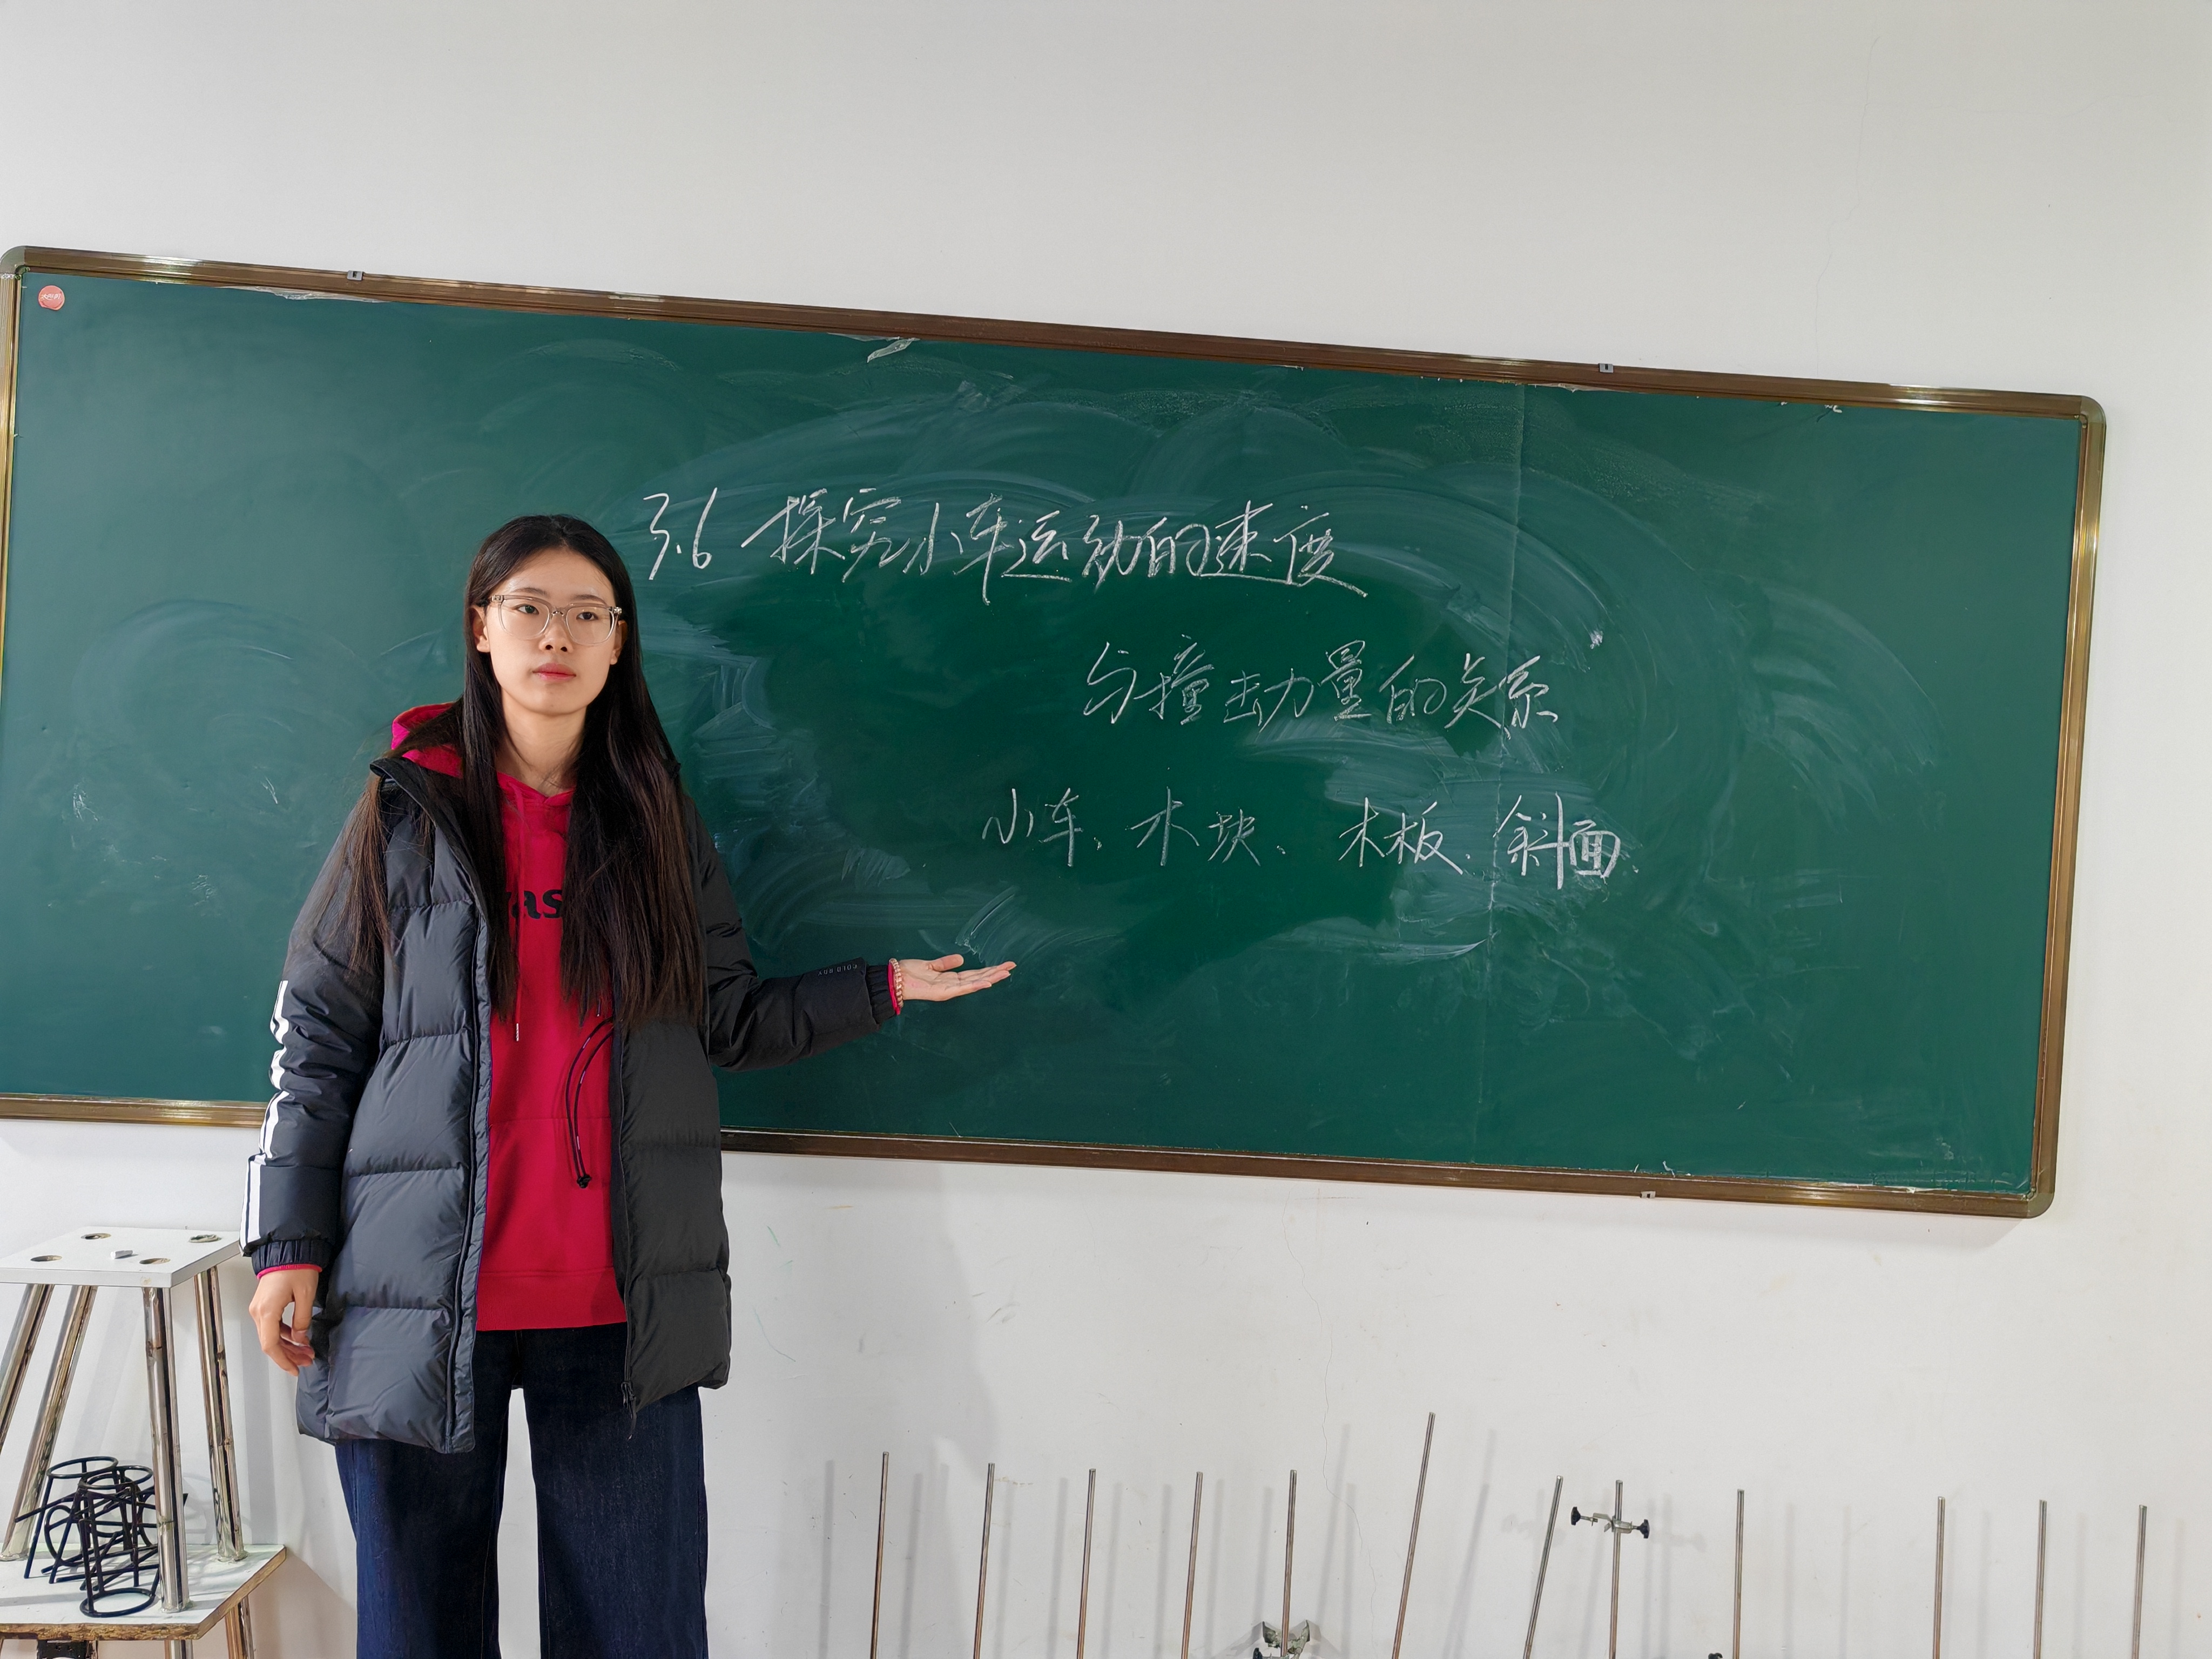 3.6 探究小车运动的速度
与撞击力量的关系
小车、木块、木板、斜面.
as